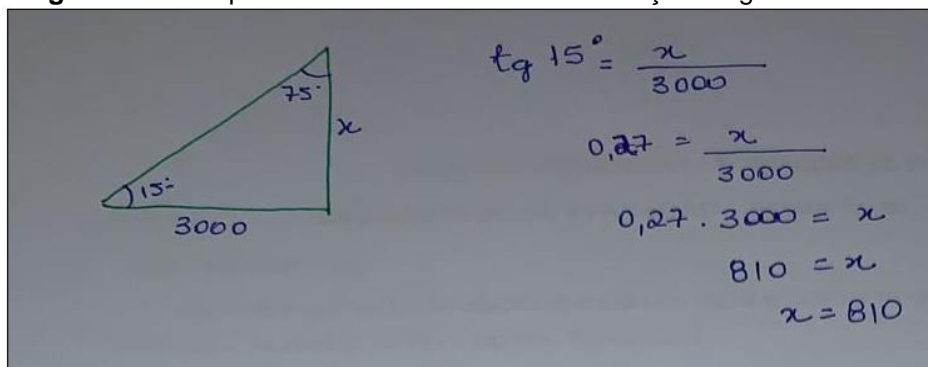 75°
x
15°
3000
tg 15° = x / 3000
0,27 = x / 3000
0,27 . 3000 = x
810 = x
x = 810